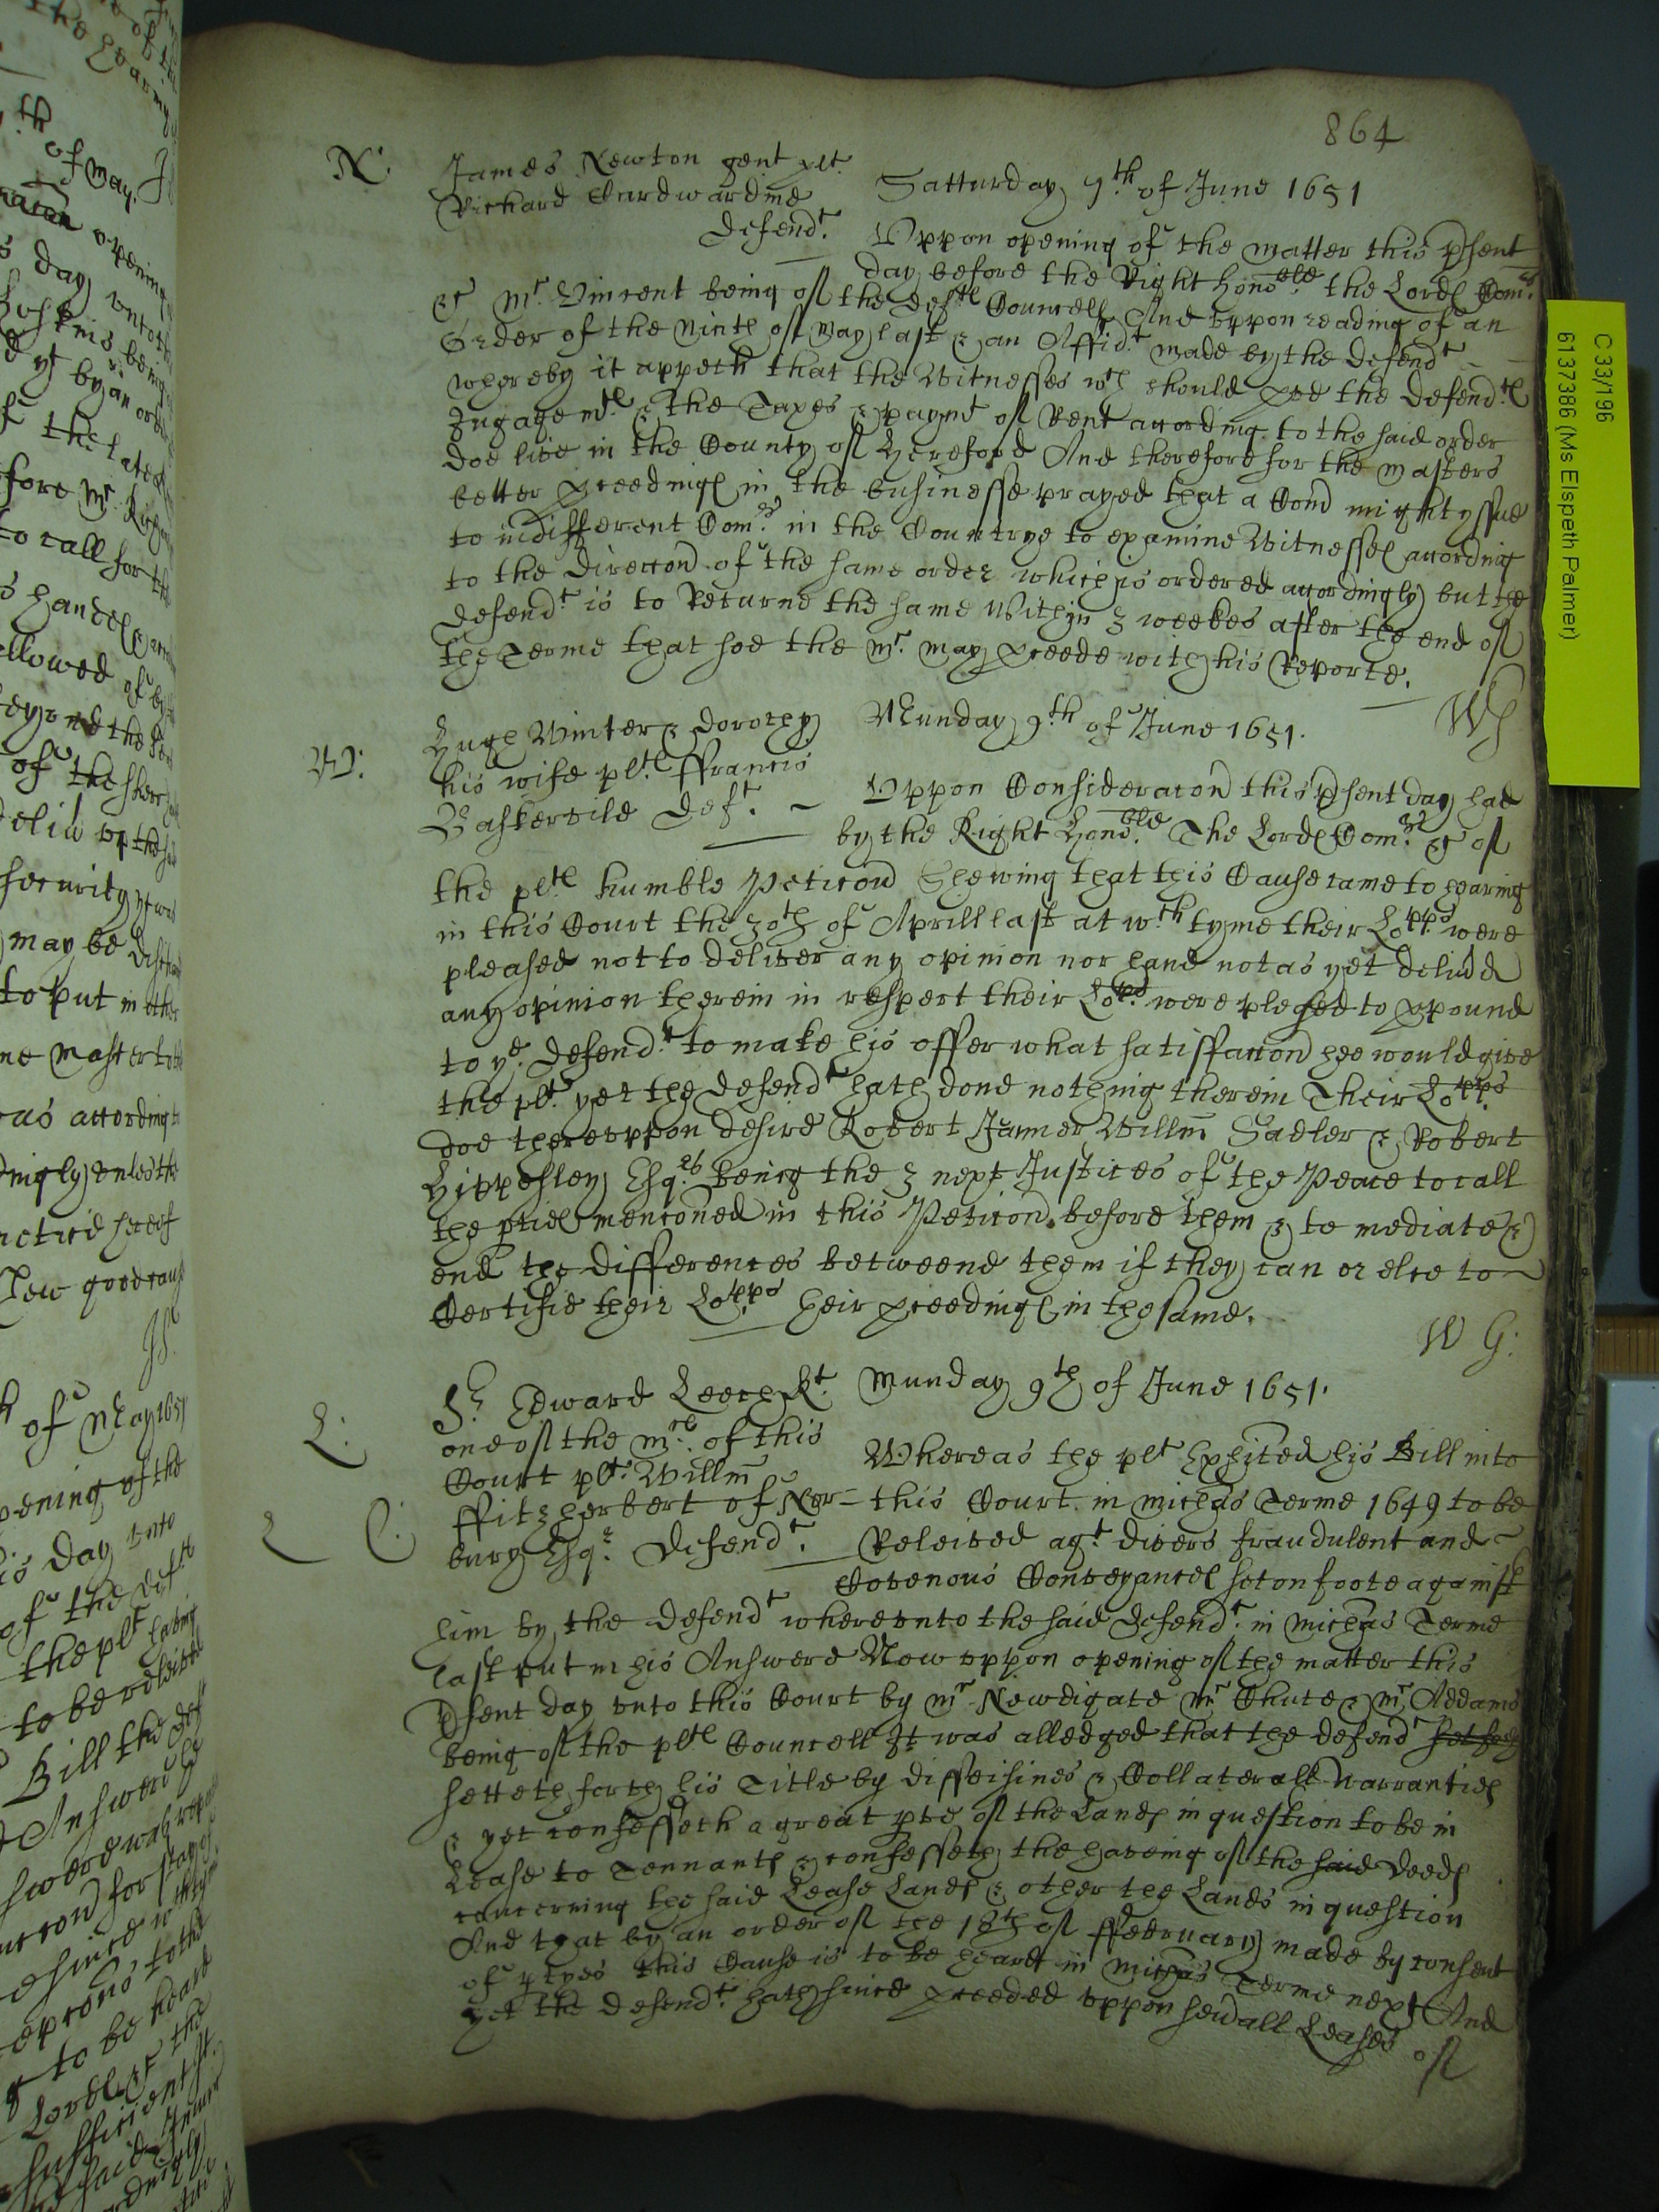 864
N. James Newton gent plt.
Richard Cardwardine
Defendt.
Satturday 7.th of June 1651
Uppon opening of the matter this psent
day before the Right Honoble. the Lords Comrs.
&c Mr. Vincent being of the Defts Councell And uppon reading of an
Order of the Ninth of May last & an Affidt. made by the Defendt
whereby it appeth that the Witnesses wch should pve the Defendts
Ingagemts & the Taxes & paymt of Rent according to the said order
doe live in the County of Hereford And therefore for the masters
better pceedings in the businesse prayed that a Comd might yssue
to indifferent Comrs. in the Countrye to examine Witnesses according
to the Direccon of the same order which is ordered accordingly but the
Defendt. is to Returne the same Within 3 weekes after the end of
the Terme that soe the Mr. may pceede with his Reporte.
W. Hugh Winter & Dorothy
his wife plts ffrancis
Baskervile Deft.
Munday 9th of June 1651.
Uppon Consideracon this psent day had
by the Right Honoble. The Lords Comrs. &c of
the plts humble Peticon Shewing that this Cause came to hearing
in this Court the 30th of Aprill last at wch tyme their Lopps. were
pleased not to deliver any opinion nor have not as yet delivd
any opinion therein in respect their Lopps. were plesed to ppound
to ye. Defendt. to make his offer what satisfaccon hee would give
the plt. yet the Defendt hath done nothing therein Their Lopps.
doe thereuppon desire Robert Jamner Willm Sadler & Robert
Hippesley Esqrs. being the 3 next Justices of the Peace to call
the pties menconed in this Peticon before them & to mediate &
end the differences betweene them if they can or else to
Certifie their Lopps heir pceedings in the same.
W G:
L: Sr. Edward Leech Kt.
one of the Mrs. of this
Court plt. Willm
ffitzherbert of Nor-
bury Esqr. Defendt.
Munday 9th of June 1651.
Whereas the plt Exhited his Bill into
this Court in Michas Terme 1649 to be
Releived agt. divers fraudulent and
Covenous Conveyances set on foote against
him by the Defendt whereunto the said Defendt. in Michas Terme
last put in his Answere Now uppon opening of the matter this
psent day unto this Court by Mr Newdigate Mr Chute & Mr Addams
being of the plts Councell It was alledged that the Defendt
setteth forth his Title by disseisines & Collaterall Warranties
& yet confesseth a great pte of the Lands in question to be in
Lease to Tennants & confesseth the haveing of the said Deeds
concerning the said Lease Lands & other the Lands in question
And that by an order of the 18th of ffebruary made by consent
of ptyes this Cause is to be heard in Michas Terme next And
yet the Defendt. hath since pceeded uppon sevall Leases
of
C 33/196
6137386 (Ms Elspeth Palmer)